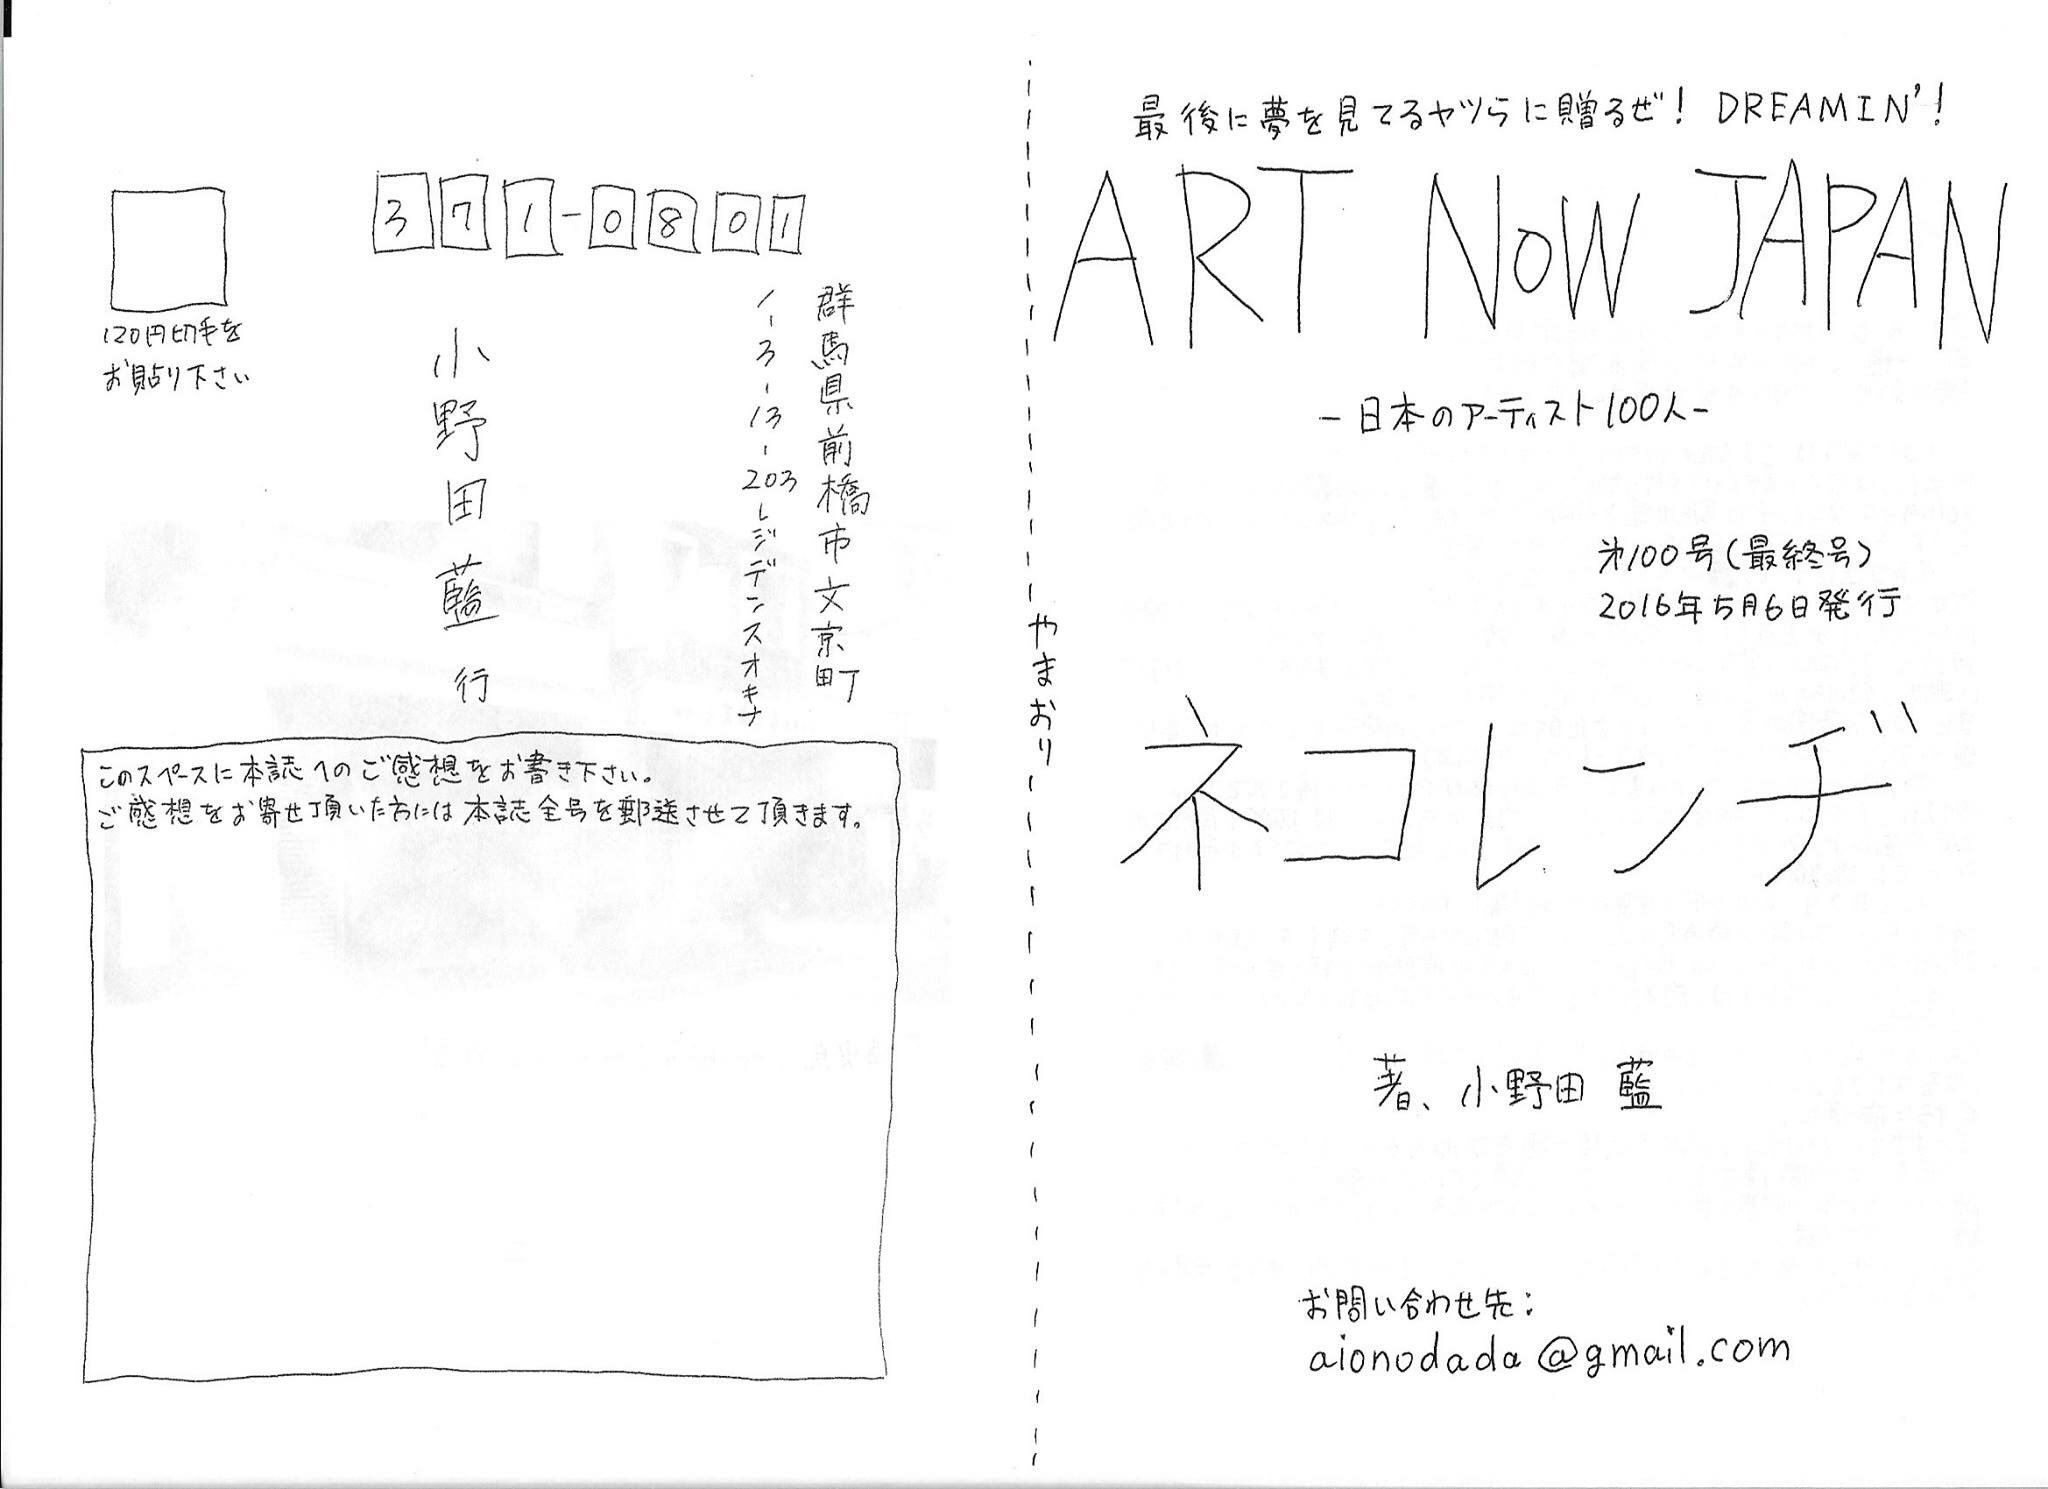 最後に夢を見てるヤツらに贈るぜ! DREAMIN'!
ART NOW JAPAN
-日本のアーティスト100人-
第100号(最終号)
2016年5月6日発行
ネコレンヂ
著、小野田 藍
お問い合わせ先:
aionodada@gmail.com
やまおり
371-0801
群馬県前橋市文京町
1-3-13-203レジデンスオキナ
小野田藍 行
120円切手を
お貼り下さい
このスペースに本誌へのご感想をお書き下さい。
ご感想をお寄せ頂いた方には本誌全号を郵送させて頂きます。